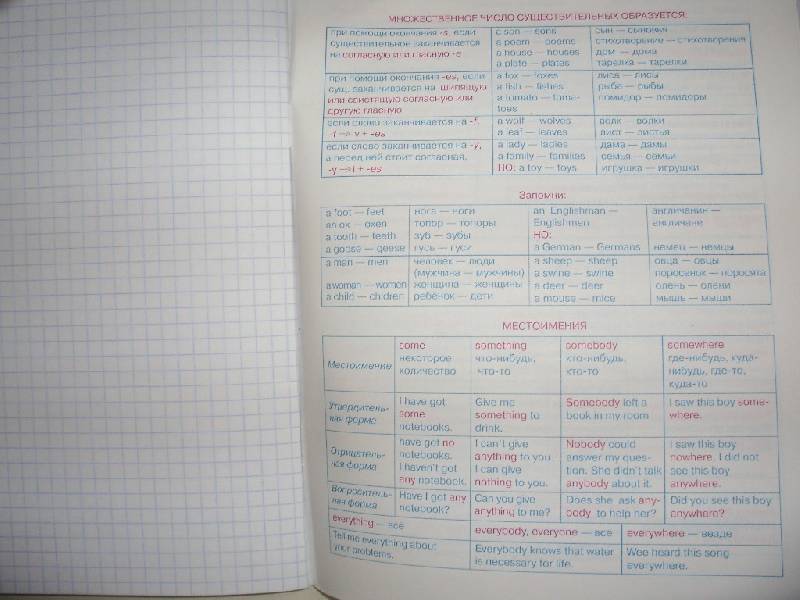 МНОЖЕСТВЕННОЕ ЧИСЛО СУЩЕСТВИТЕЛЬНЫХ ОБРАЗУЕТСЯ:
при помощи окончания -s, если
существительное заканчивается
на согласную или гласную -e
a son — sons
a poem — poems
a house — houses
a plate — plates
сын — сыновья
стихотворение — стихотворения
дом — дома
тарелка — тарелки
при помощи окончания -es, если
сущ. заканчивается на шипящую
или свистящую согласную или
другую гласную
a fox — foxes
a fish — fishes
a tomato — toma-
toes
лиса — лисы
рыба — рыбы
помидор — помидоры
если слово заканчивается на -f,
-f → v + -es
a wolf — wolves
a leaf — leaves
волк — волки
лист — листья
если слово заканчивается на -y,
а перед ней стоит согласная,
-y → i + -es
a lady — ladies
a family — families
НО: a toy — toys
дама — дамы
семья — семьи
игрушка — игрушки
Запомни:
a foot — feet
an ox — oxen
a tooth — teeth
a goose — geese
нога — ноги
топор — топоры
зуб — зубы
гусь — гуси
an Englishman —
Englishmen
НО:
a German — Germans
англичанин —
англичане
немец — немцы
a man — men
a woman — women
a child — children
человек — люди
(мужчина — мужчины)
женщина — женщины
ребёнок — дети
a sheep — sheep
a swine — swine
a deer — deer
a mouse — mice
овца — овцы
поросенок — поросята
олень — олени
мышь — мыши
МЕСТОИМЕНИЯ
Местоимение
some
некоторое
количество
something
что-нибудь,
что-то
somebody
кто-нибудь,
кто-то
somewhere
где-нибудь, куда-
нибудь, где-то,
куда-то
Утвердитель-
ная форма
I have got
some
notebooks.
Give me
something to
drink.
Somebody left a
book in my room
I saw this boy some-
where.
Отрицатель-
ная форма
have got no
notebooks.
I haven't got
any notebook.
I can't give
anything to you
I can give
nothing to you.
Nobody could
answer my ques-
tion. She didn't talk
anybody about it.
I saw this boy
nowhere. I did not
see this boy
anywhere.
Вопроситель-
ная форма
Have I got any
notebook?
Can you give
anything to me?
Does she ask any-
body to help her?
Did you see this boy
anywhere?
everything — все
everybody, everyone — все
everywhere — везде
Tell me everything about
your problems.
Everybody knows that water
is necessary for life.
Wee heard this song
everywhere.